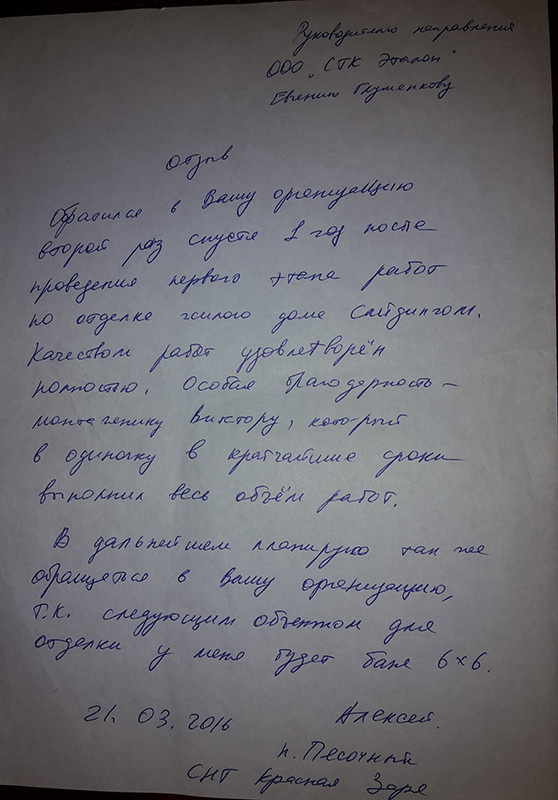 Руководителю направления
ООО "СТК Эталон"
Евгению Глуменкову
Отзыв
Обратился в Вашу организацию
второй раз спустя 1 год после
проведения первого этапа работ
по отделке жилого дома сайдингом.
Качеством работ удовлетворён
полностью. Особая благодарность –
монтажнику Виктору, который
в одиночку в кратчайшие сроки
выполнил весь объём работ.
В дальнейшем планирую так же
обращаться в Вашу организацию,
т.к. следующим объектом для
отделки у меня будет баня 6×6.
21.03.2016 Алексей.
п. Песочный
СНТ Красная Заря